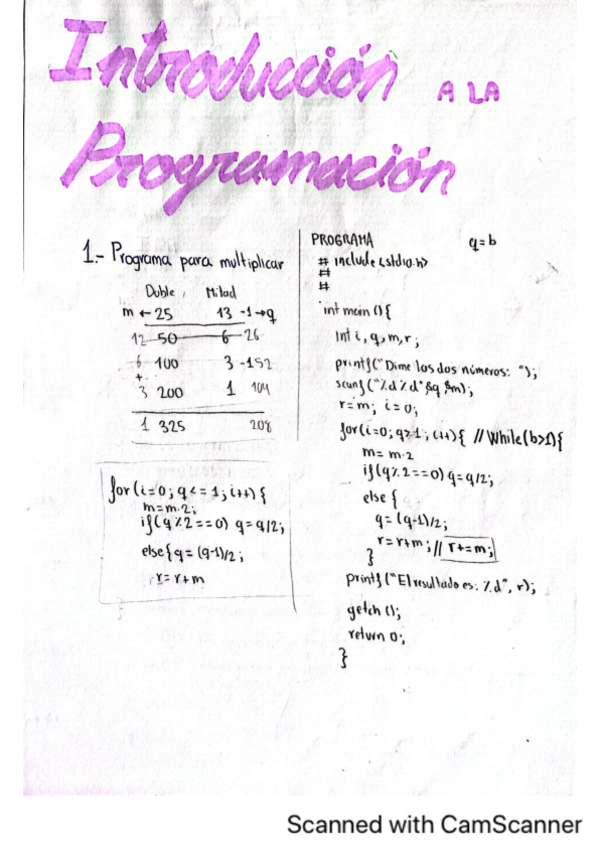 Introducción A LA
Programación
1.- Programa para multiplicar
Doble, Mitad
m ← 25 13 -1 → q
12 50 6 - 26
6 100 3 - 152
+
3 200 1 104
1 325 208
for(i=0; q<=1; i++){
m=m·2;
if(q%2==0) q=q/2;
else{q=(q-1)/2;
r=r+m
PROGRAMA q=b
# include <stdio.h>
#
#
int main(){
int i, q, m, r;
printf("Dime los dos números: ");
scanf("%d%d" &q &m);
r=m; i=0;
for(i=0; q>1; i++){ // While(b>1){
m= m·2
if(q%2==0) q=q/2;
else {
q= (q-1)/2;
r=r+m; // r+=m;
}
printf("El resultado es: %d", r);
getch();
return 0;
}
Scanned with CamScanner